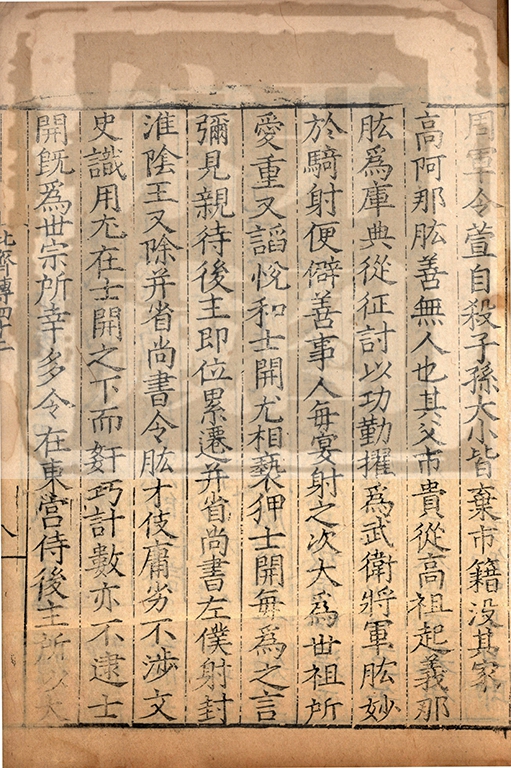 周軍令萱自殺子孫大小皆棄市籍没其家
高阿那肱善無人也其父市貴從高祖起義那
肱爲庫典從征討以功勤擢爲武衛將軍肱妙
於騎射便僻善事人每宴射之次大爲世祖所
愛重又謟悅和士開尤相褻狎士開每爲之言
彌見親待後主即位累遷并省尚書左僕射封
淮陰王又除并省尚書令肱才伎庸劣不涉文
史識用尤在士開之下而姧巧計數亦不逮士
開旣爲世宗所幸多令在東宫侍後主所以大
北齊傳四十二
八